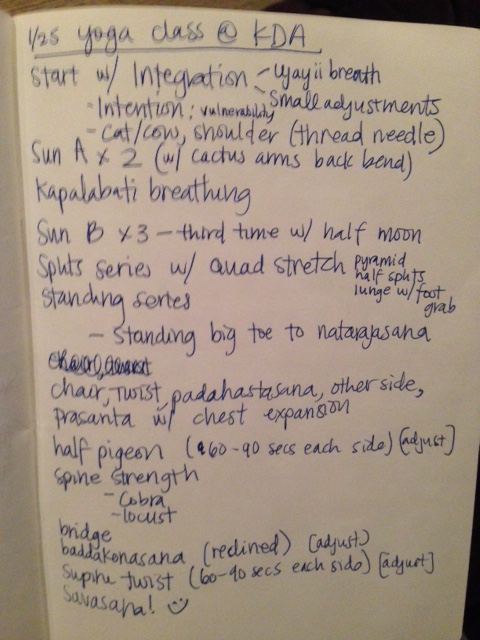 1/25 yoga class @ KDA
Start w/ Integration - Ujayii breath
- Small adjustments
- Intention: vulnerability
- cat/cow, shoulder (thread needle)
Sun A x 2 (w/ cactus arms back bend)
Kapalabati breathing
Sun B x3 - third time w/ half moon
Splits series w/ quad stretch pyramid
half splits
lunge w/ foot grab
Standing series
- Standing big toe to natarajasana
chair, twist, padahastasana, other side,
prasanta w/ chest expansion
half pigeon (60-90 secs each side) [adjust]
spine strength
- cobra
- locust
bridge
baddakonasana (reclined) [adjust]
supine twist (60-90 secs each side) [adjust]
Savasana! ☺